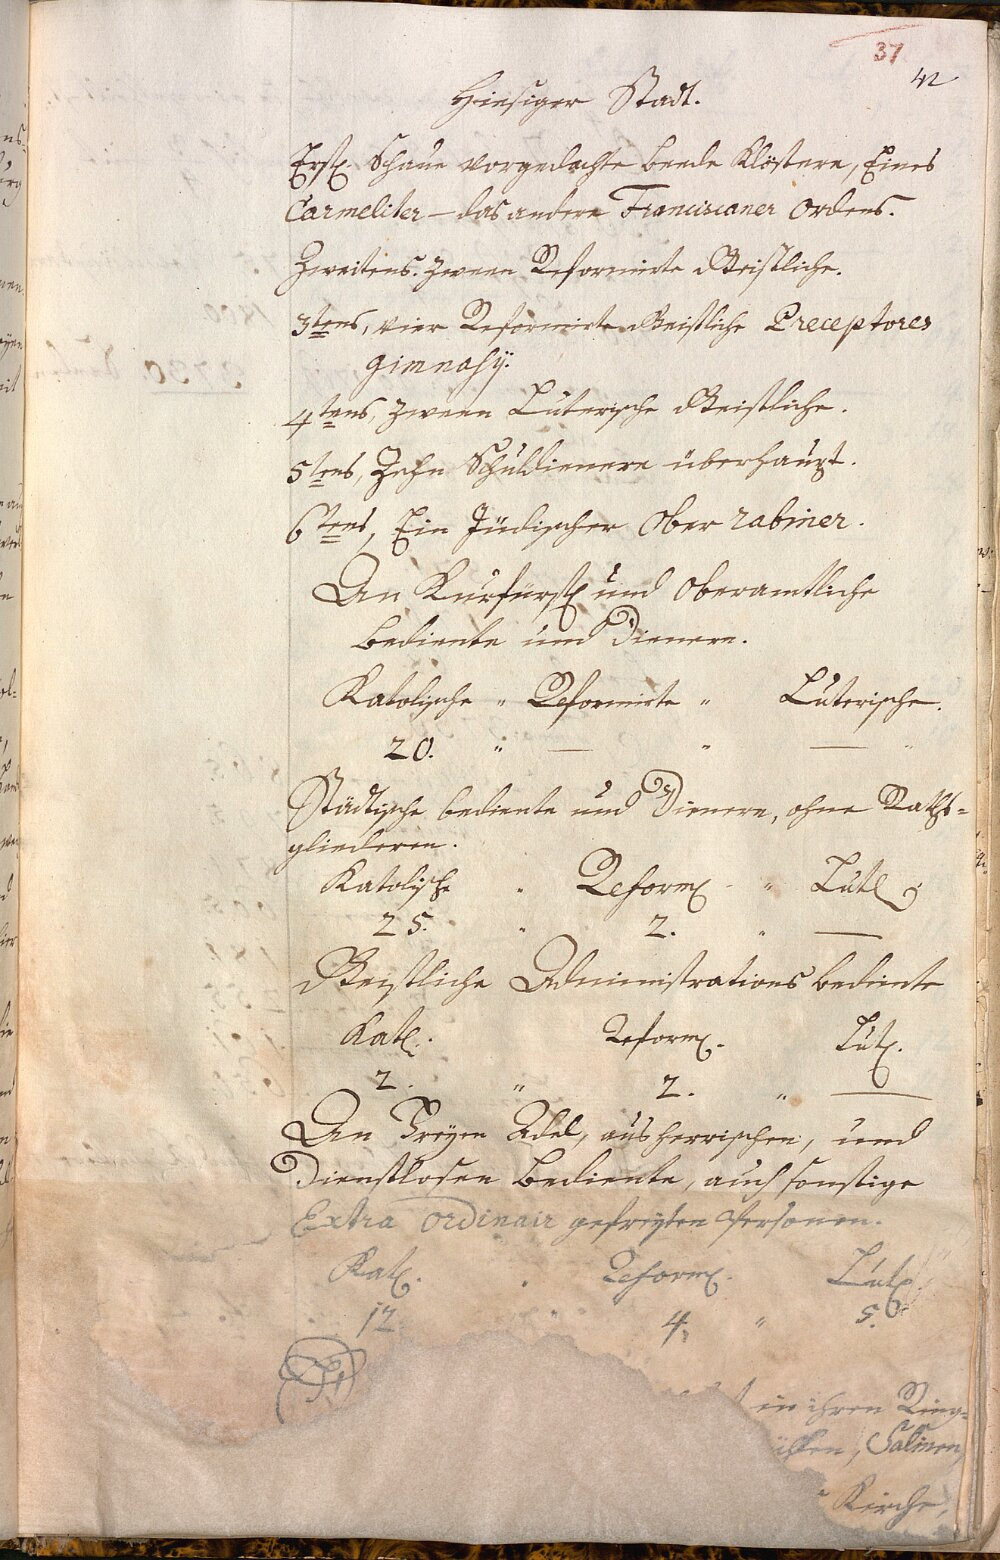 37
42
Hiesiger Stadt.
Erstl. Schaue vorgedachte beede Klöstere, Eines
Carmeliter – das andere Franciscaner Ordens.
Zweitens. Zween Reformirte Geistliche.
3tens, vier Reformirte Geistliche Preceptores
gimnasij.
4tens, Zween Luterische Geistliche.
5tens, Zehn Schuldienere überhaupt.
6tens, Ein Jüdischer Ober rabiner.
An Kurfürstl. und Oberamtliche
Bediente und Dienere.
Katolische " Reformirte " Luterische.
20. " — " — "
Städtische bediente und Dienere, ohne Raths=
gliederen.
Katolische " Reforml. " Lutl.
25. " 2. " —
Geistliche Administrations bediente
Katl. Reforml. Lutl.
2. " 2. " —
An Freyem Adel, ausherrischen, und
Dienstlosen Bediente, auch sonstige
Extra Ordinair gefreyten Personen.
Katl. Reforml. Lutl.
17 " 4. " 5.
in ihren Ring=
Salinen,
Kirche,